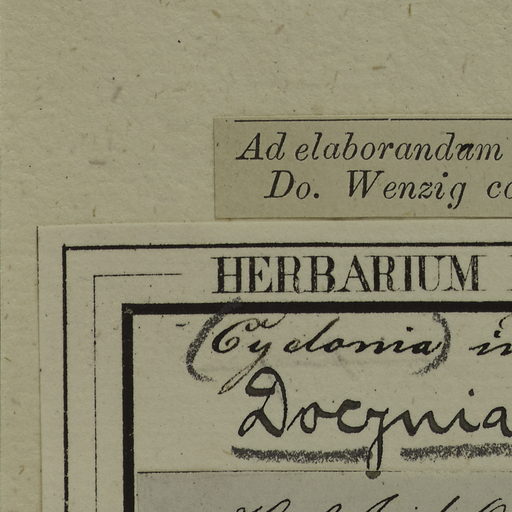 Ad elaborandum
Do. Wenzig
HERBARIUM
(Cydonia)
Docynia